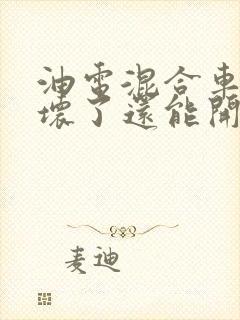 油電混合車
壞了還能開
麦迪